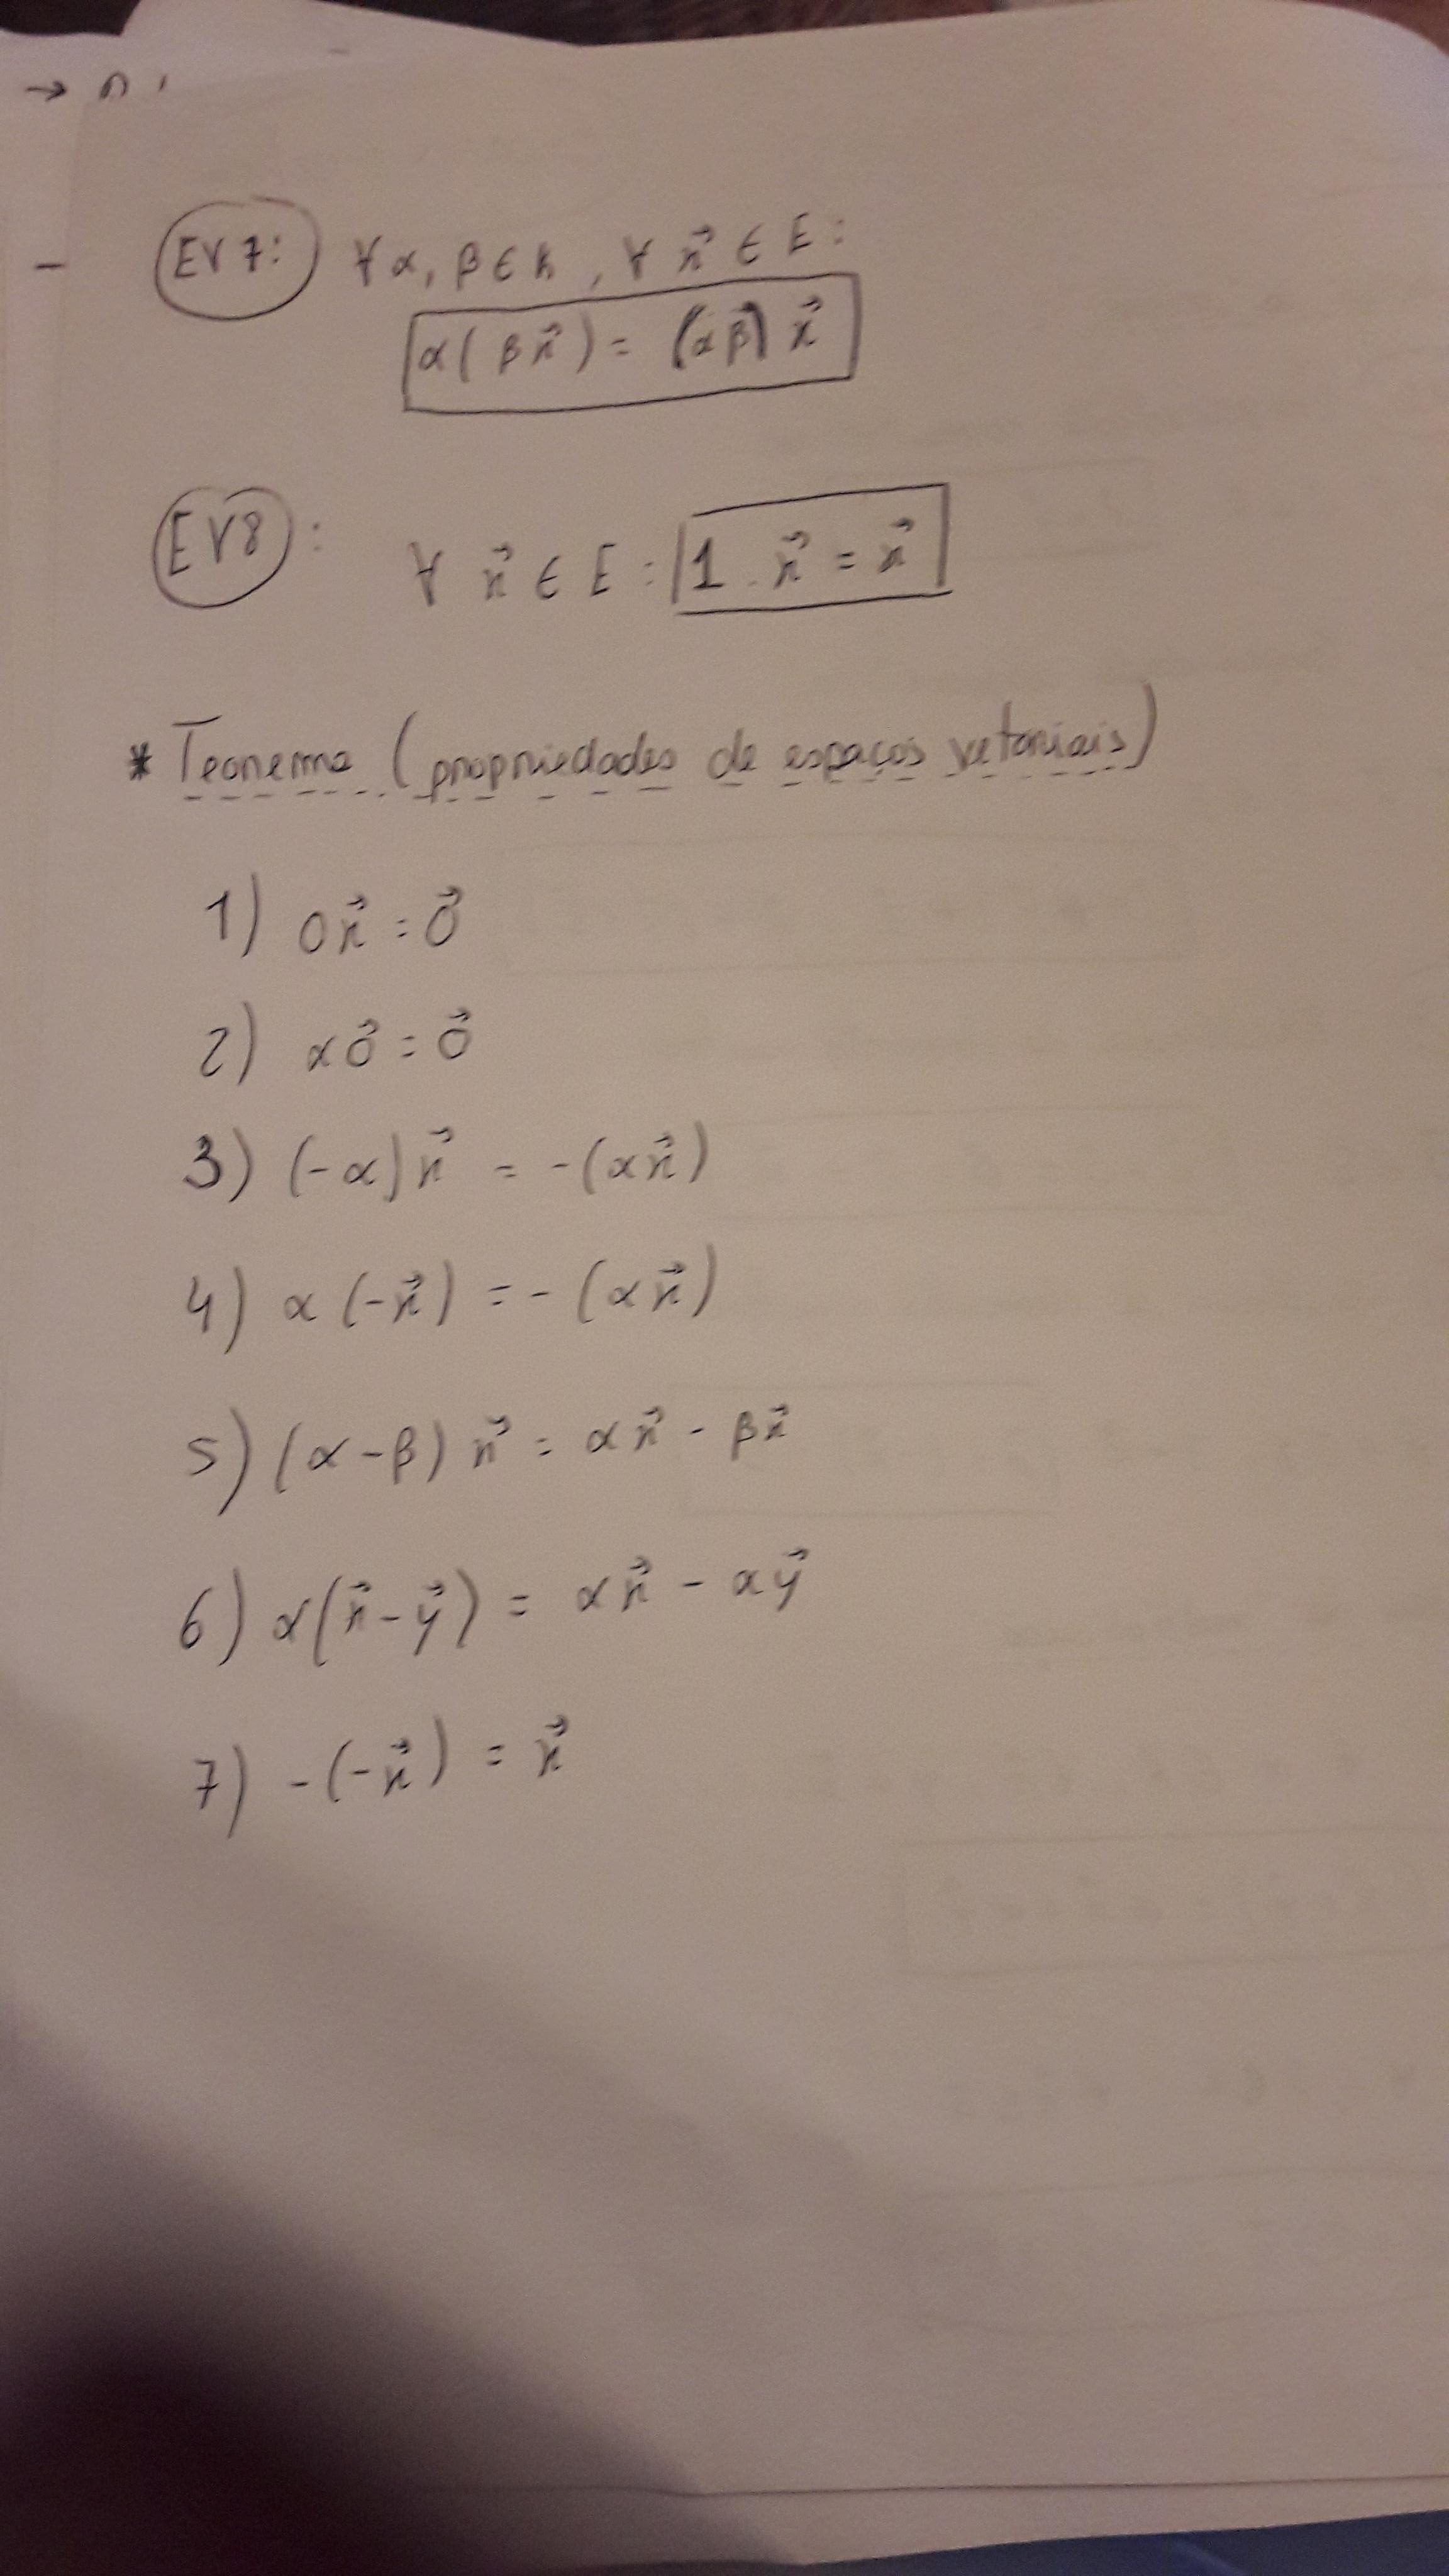 → n
EV7: ∀ α, β ∈ K, ∀ x⃗ ∈ E:
α(βx⃗) = (αβ)x⃗
EV8: ∀ x⃗ ∈ E: 1.x⃗ = x⃗
* Teorema (propriedades de espaços vetoriais)
1) 0x⃗ = 0⃗
2) α0⃗ = 0⃗
3) (-α)x⃗ = -(αx⃗)
4) α(-x⃗) = -(αx⃗)
5) (α-β)x⃗ = αx⃗ - βx⃗
6) α(x⃗-y⃗) = αx⃗ - αy⃗
7) -(-x⃗) = x⃗